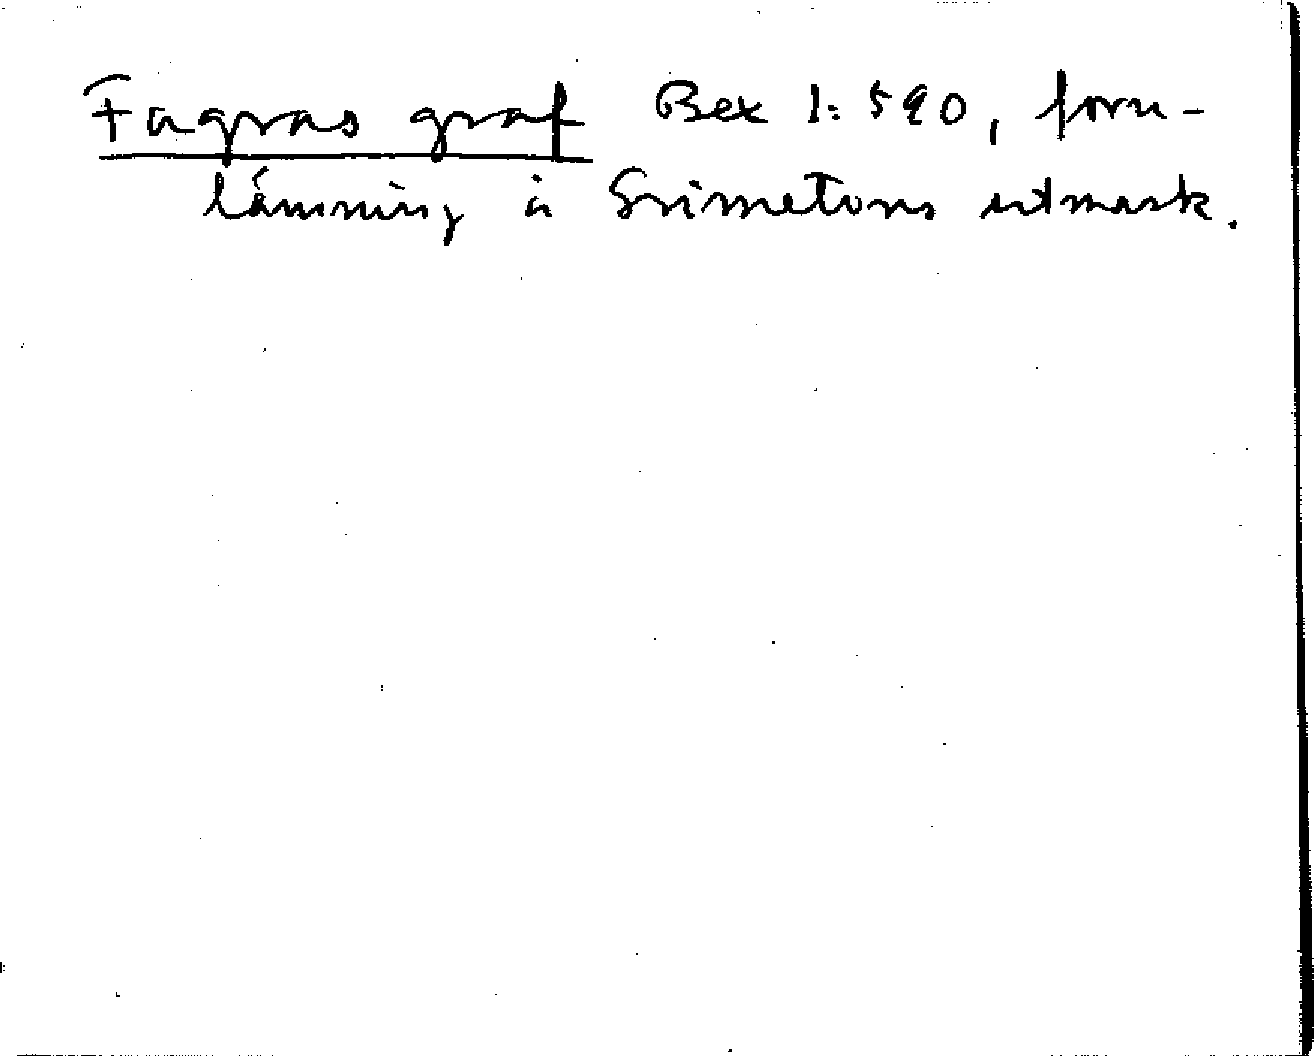 Fagras graf Bex 1:590, forn-
lämning å Grimetons utmark.